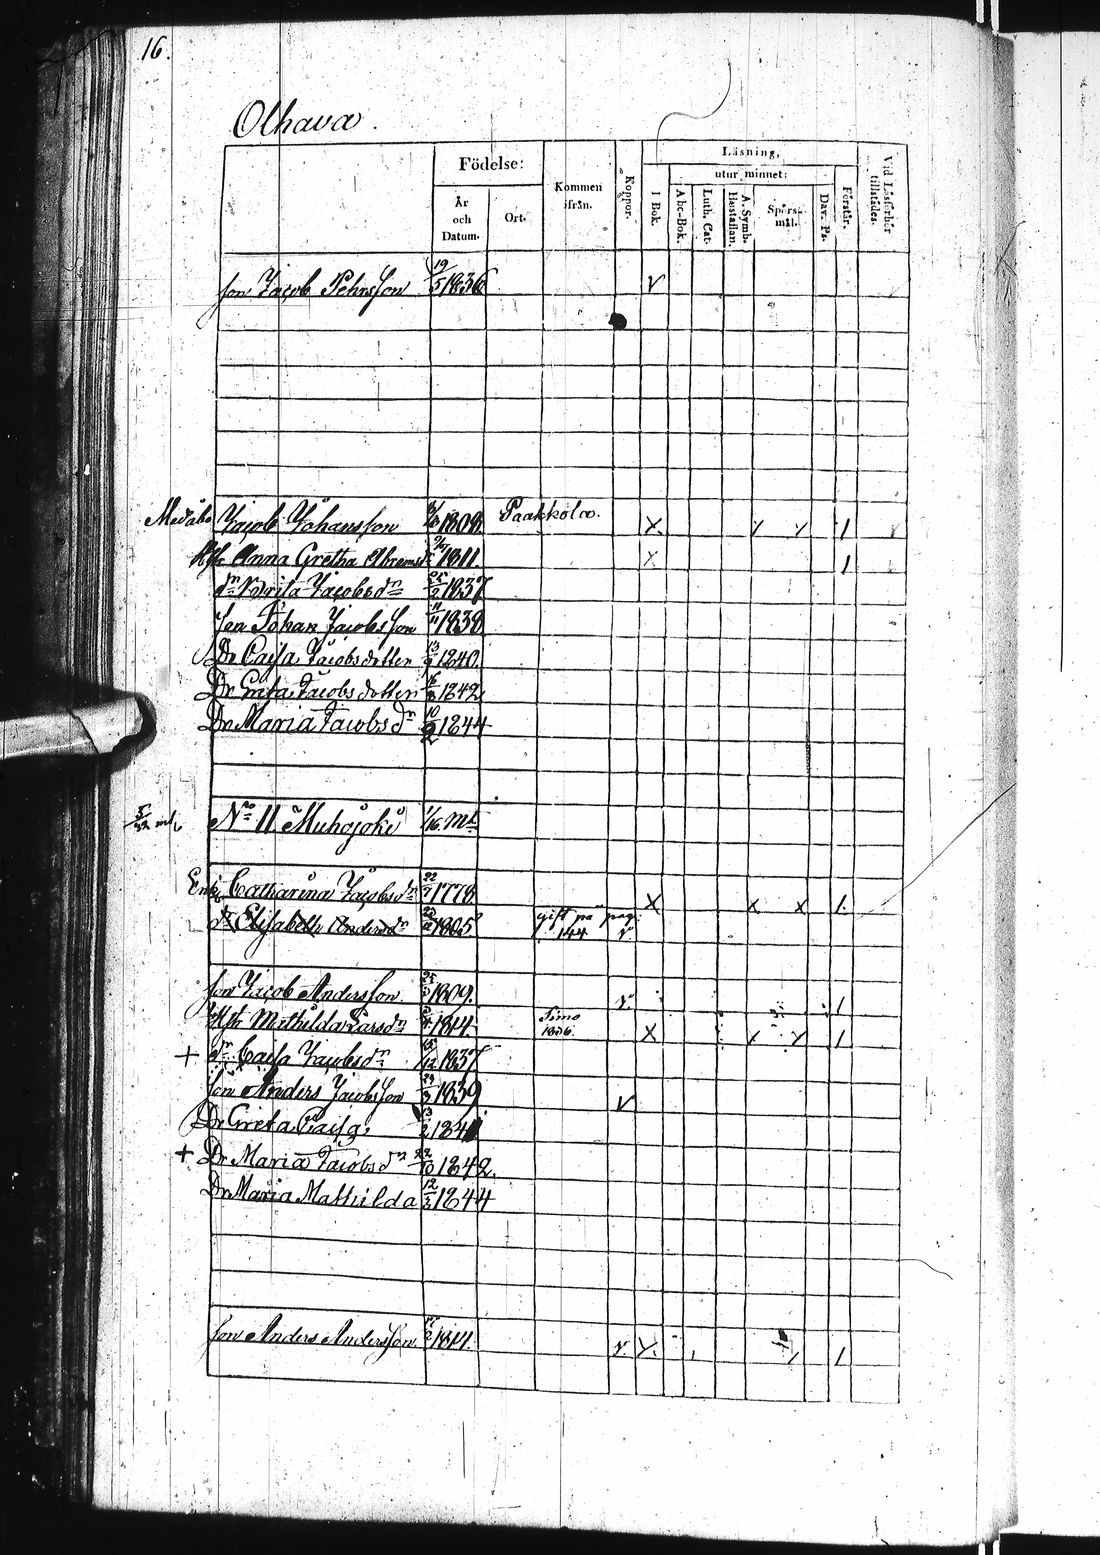 16.
Olhava.
Födelse:
År och Datum.
Ort.
Kommen ifrån.
Koppor.
Läsning,
I Bok.
utur minnet:
Abc-Bok.
Luth. Cat.
A. Symb. Hustaflan.
Spörsmål.
Dav. Ps.
Förstår.
Vid Läsförhör tillstädes.
Son Jacob Pehrsson 19/5 1836 v
Jacob Johansson 1808 Paakkola. x 1
Hr Anna Gretha Abramsdr 1811. x 1
dr Brita Jacobsdn 25/2 1837
Son Johan Jacobsson 11/11 1838
Dr Caisa Jacobsdotter 13/9 1840.
Dr Greta Jacobsdotter 16/8 1842
Dr Maria Jacobsdn 10/2 1844
No 11 Muhojoki 1/16 mtl
Enk. Catharina Jacobsdn 22/7 1778 x x x 1.
dr Elisabeth Andersdn 1805 gift på pag. 144 v
Son Jacob Andersson 25/3 1809. v 1
Hr Mathilda Larsdn 1814 Simo 1836. x 1
+ dr Caisa Jacobsdn 15/12 1837
Son Anders Jacobsson 29/3 1839 v
Dr Greta Caisa 13/2 1841
+ Dr Maria Jacobsdn 22/10 1842.
Dr Maria Mathilda 12/3 1844
Son Anders Andersson. 1811. v 1